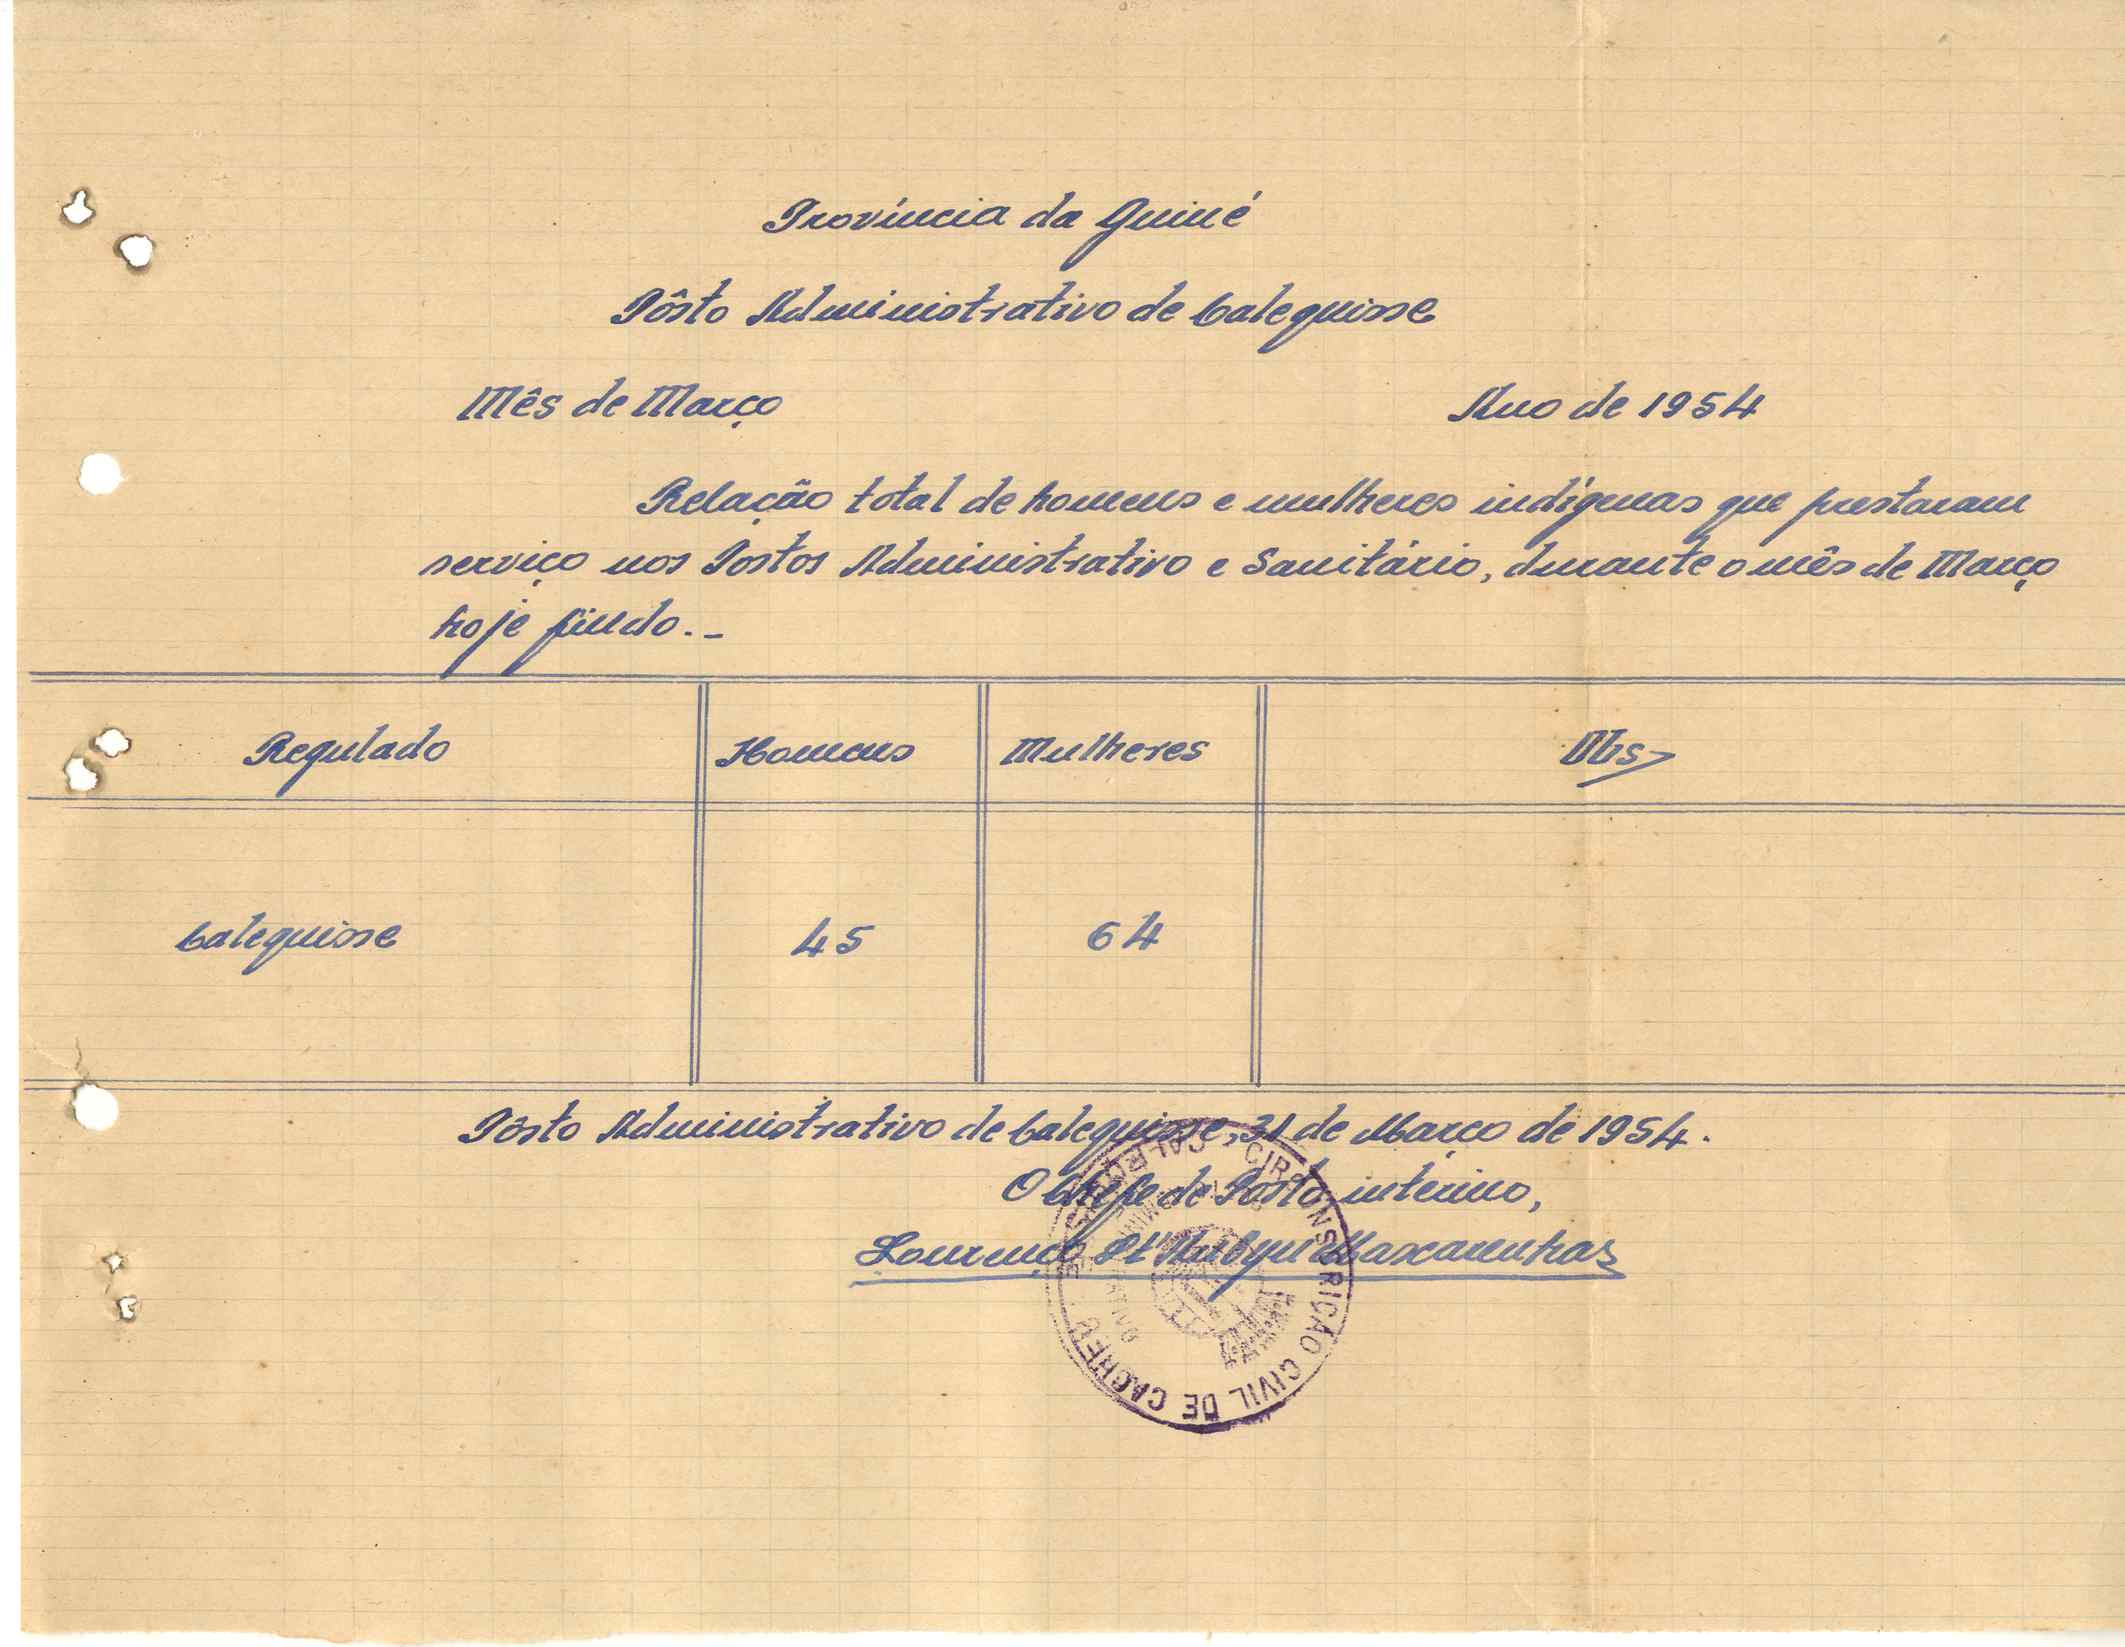 Província da Guiné
Pôsto Administrativo de Calequisse
Mês de Março Ano de 1954
Relação total de homens e mulheres indígenas que prestaram
serviço nos Postos Administrativo e Sanitário, durante o mês de Março
hoje findo.-
Regulado Homens Mulheres Obs
Calequisse 45 64
Pôsto Administrativo de Calequisse, 31 de Março de 1954.
O Chefe de Posto, interino,
Lourenço Mascarenhas
CIRCUNSCRIÇÃO CIVIL DE CACHEU